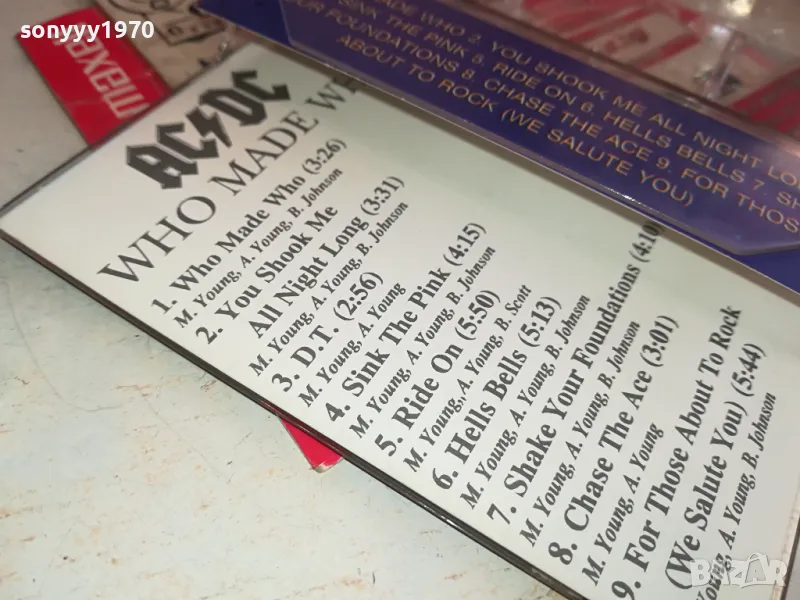 sonyyy1970
maxe
ADE WHO 2. YOU SHOOK ME ALL NIGHT LO
SINK THE PINK 5. RIDE ON 6. HELLS BELLS 7. SH
OUR FOUNDATIONS 8. CHASE THE ACE 9. FOR THOS
ABOUT TO ROCK (WE SALUTE YOU)
AC/DC
WHO MADE WH
1. Who Made Who (3:26)
M. Young, A. Young, B. Johnson
2. You Shook Me
All Night Long (3:31)
M. Young, A. Young, B. Johnson
3. D.T. (2:56)
M. Young, A. Young
4. Sink The Pink (4:15)
M. Young, A. Young, B. Johnson
5. Ride On (5:50)
M. Young, A. Young, B. Scott
6. Hells Bells (5:13)
M. Young, A. Young, B. Johnson
7. Shake Your Foundations (4:10)
M. Young, A. Young, B. Johnson
8. Chase The Ace (3:01)
M. Young, A. Young
9. For Those About To Rock
(We Salute You) (5:44)
Young, A. Young, B. Johnson
bazar